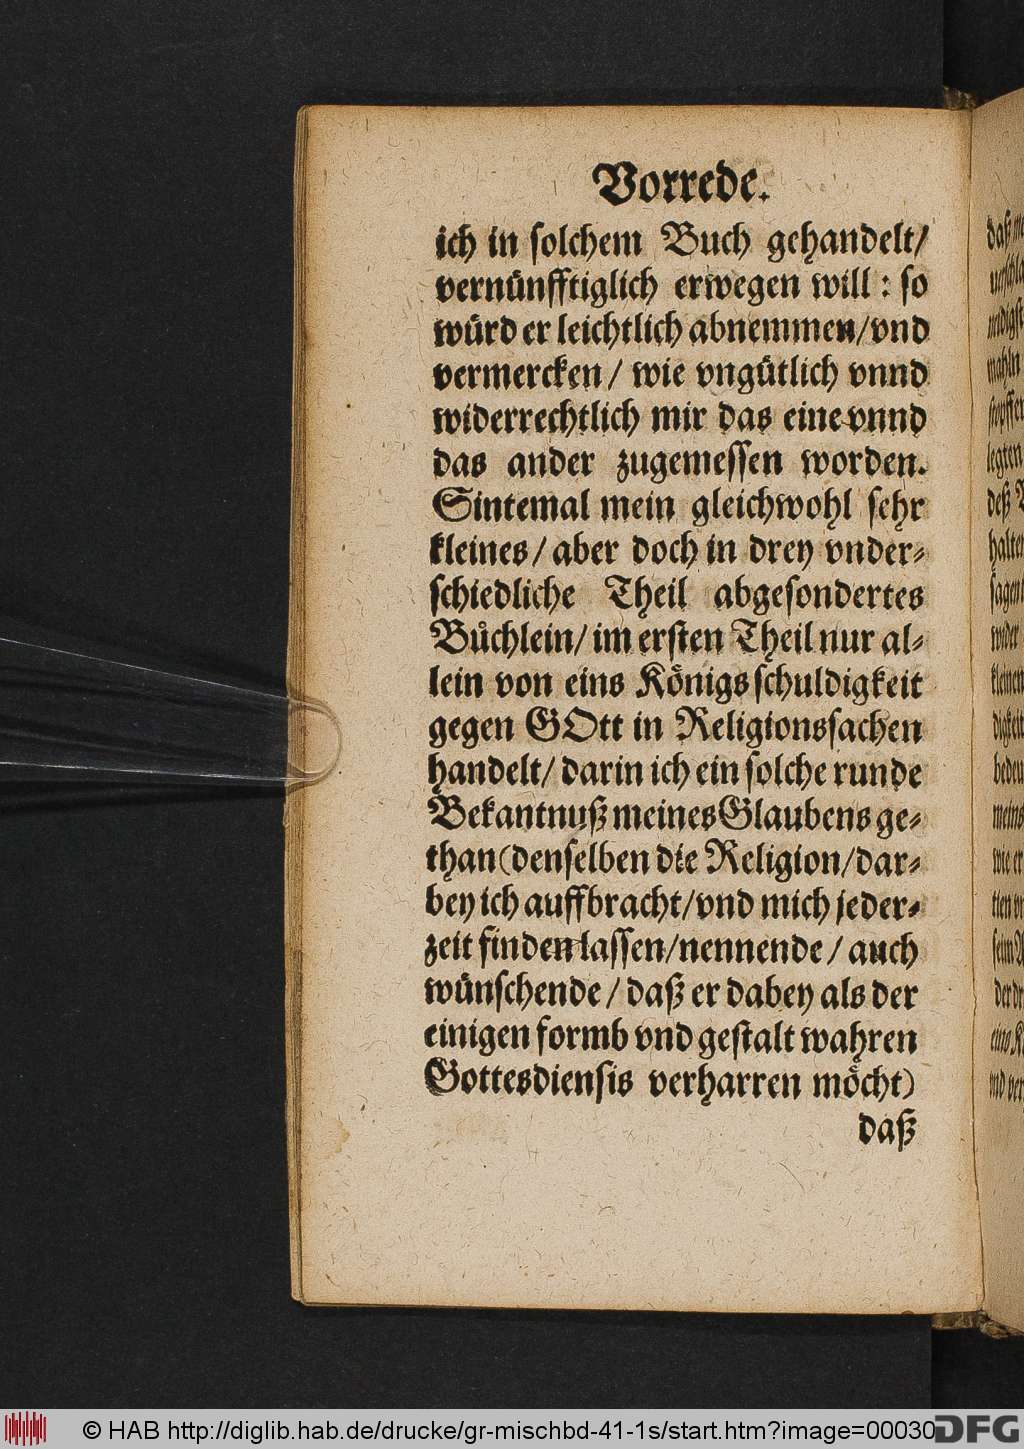 Vorrede.
ich in solchem Buch gehandelt/
vernünfftiglich erwegen will: so
würd er leichtlich abnemmen/vnd
vermercken/ wie vngütlich vnnd
widerrechtlich mir das eine vnnd
das ander zugemessen worden.
Sintemal mein gleichwohl sehr
kleines/ aber doch in drey vnder-
schiedliche Theil abgesondertes
Büchlein/ im ersten Theil nur al-
lein von eins Königs schuldigkeit
gegen GOtt in Religionssachen
handelt/ darin ich ein solche runde
Bekantnuß meines Glaubens ge-
than (denselben die Religion/dar-
bey ich auffbracht/vnd mich jeder-
zeit finden lassen/nennende/ auch
wünschende/ daß er dabey als der
einigen formb vnd gestalt wahren
Gottesdiensts verharren möcht)
daß
© HAB http://diglib.hab.de/drucke/gr-mischbd-41-1s/start.htm?image=00030
DFG